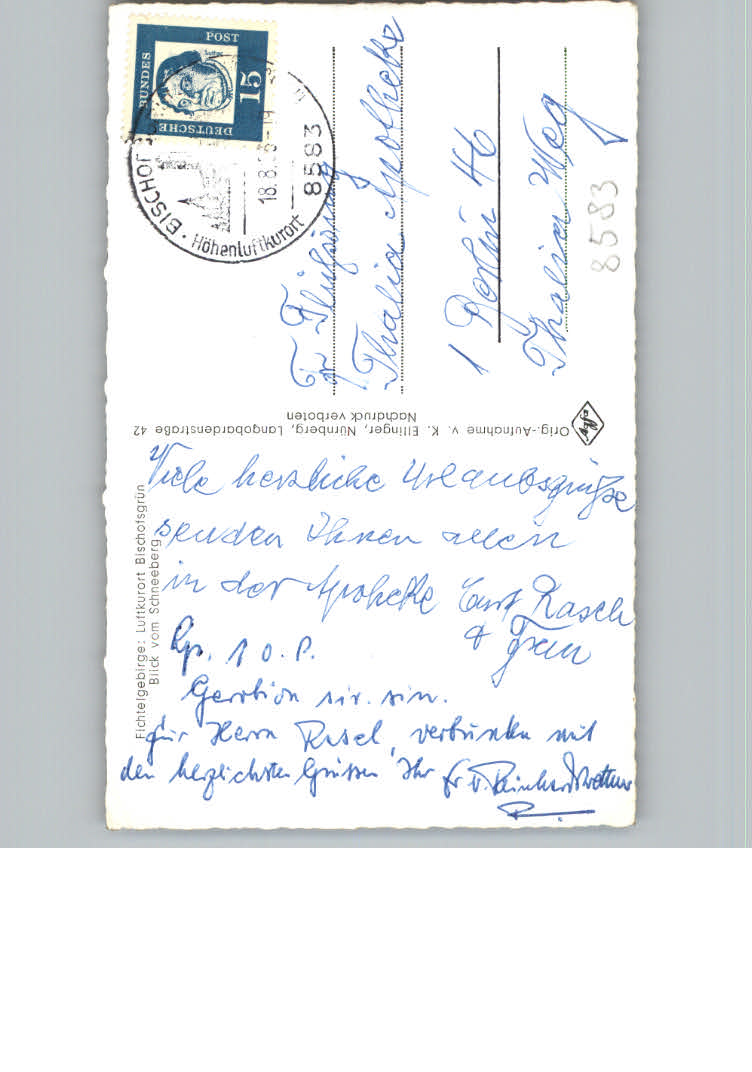 DEUTSCHE BUNDES POST
15
BISCHOF
18.8.
8583
Höhenluftkurort
Thalia Apotheke
1 Berlin 46
Thalia Weg
8583
Orig.-Aufnahme v. K. Ellinger, Nürnberg, Langobardenstraße 42
Nachdruck verboten
Fichtelgebirge: Luftkurort Bischofsgrün
Blick vom Schneeberg
Viele herzliche Urlaubsgrüße
senden Ihnen allen
in der Apotheke Curt Rasch
& Frau
Rp. 1 O.P.
sir. sin.
für Herrn verbunden mit
den herzlichsten Grüssen Ihr